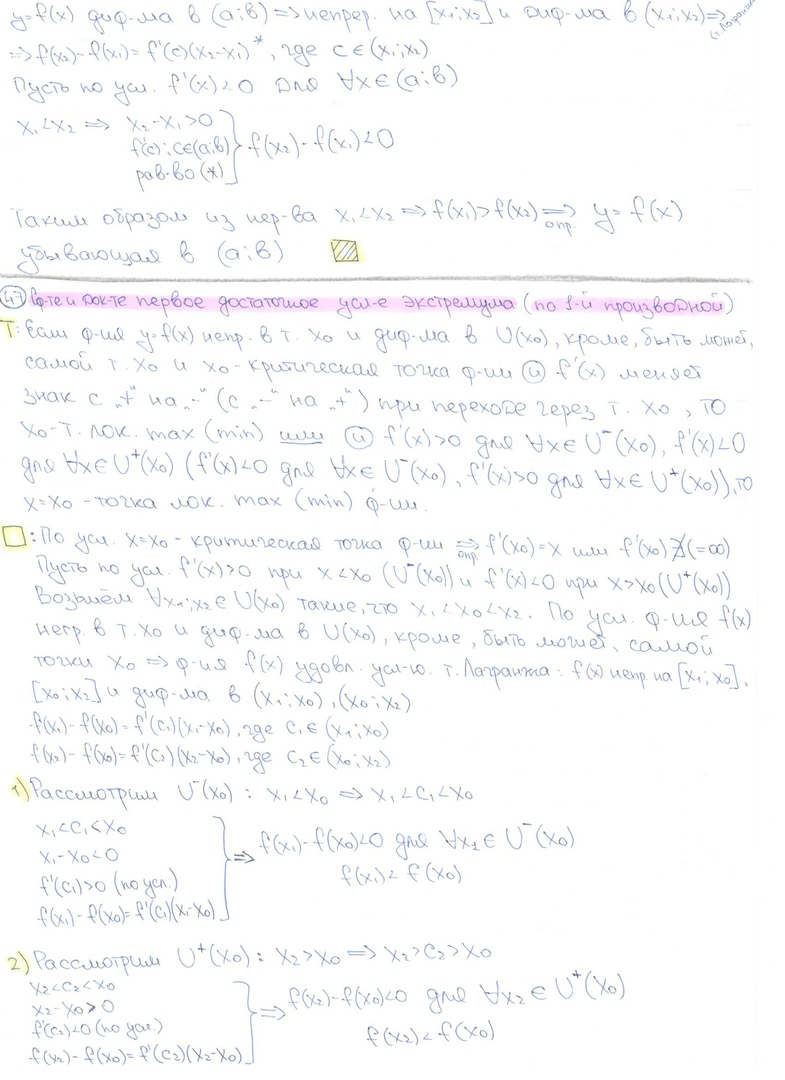 y=f(x) диф-ма в (a;в) => непрер. на [x₁;x₂] и диф-ма в (x₁;x₂) => (т. Лагранжа)
=> f(x₂)-f(x₁)=f'(c)(x₂-x₁)*, где c∈(x₁;x₂)
Пусть по усл. f'(x)<0 для ∀x∈(a;в)
x₁<x₂ => x₂-x₁>0
f'(c); c∈(a;в)
рав-во (*)
} f(x₂)-f(x₁)<0
Таким образом из нер-ва x₁<x₂ => f(x₁)>f(x₂) => опр. y=f(x)
убывающая в (a;в)
47 Сф-те и док-те первое достаточное усл-е экстремума (по 1-й производной)
T: Если ф-ия y=f(x) непр. в т. x₀ и диф-ма в U(x₀), кроме, быть может,
самой т. x₀ и x₀ - критическая точка ф-ии и f'(x) меняет
знак с „+" на „-" (с „-" на „+") при переходе через т. x₀, то
x₀-т. лок. max (min) или и f'(x)>0 для ∀x∈U⁻(x₀), f'(x)<0
для ∀x∈U⁺(x₀) (f'(x)<0 для ∀x∈U⁻(x₀), f'(x)>0 для ∀x∈U⁺(x₀)), то
x=x₀ - точка лок. max (min) ф-ии.
□: По усл. x=x₀ - критическая точка ф-ии => опр. f'(x₀)=x или f'(x₀) ∄(=∞)
Пусть по усл. f'(x)>0 при x<x₀ (U⁻(x₀)) и f'(x)<0 при x>x₀ (U⁺(x₀))
Возьмём ∀x₁;x₂∈U(x₀) такие, что x₁<x₀<x₂. По усл. ф-ия f(x)
непр. в т. x₀ и диф-ма в U(x₀), кроме, быть может, самой
точки x₀ => ф-ия f(x) удовл. усл-ю. т. Лагранжа: f(x) непр. на [x₁;x₀],
[x₀;x₂] и диф-ма в (x₁;x₀), (x₀;x₂)
f(x₁)-f(x₀)=f'(c₁)(x₁-x₀), где c₁∈(x₁;x₀)
f(x₂)-f(x₀)=f'(c₂)(x₂-x₀), где c₂∈(x₀;x₂)
1) Рассмотрим U⁻(x₀): x₁<x₀ => x₁<c₁<x₀
x₁<c₁<x₀
x₁-x₀<0
f'(c₁)>0 (по усл.)
f(x₁)-f(x₀)=f'(c₁)(x₁-x₀)
} => f(x₁)-f(x₀)<0 для ∀x₁∈U⁻(x₀)
f(x₁)<f(x₀)
2) Рассмотрим U⁺(x₀): x₂>x₀ => x₂>c₂>x₀
x₂<c₂<x₀
x₂-x₀>0
f'(c₂)<0 (по усл.)
f(x₂)-f(x₀)=f'(c₂)(x₂-x₀)
} => f(x₂)-f(x₀)<0 для ∀x₂∈U⁺(x₀)
f(x₂)<f(x₀)